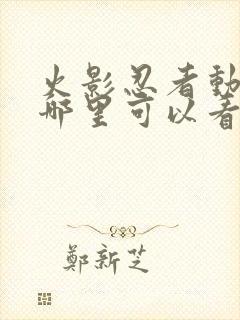 火影忍者動
哪里可以看
鄭新芝